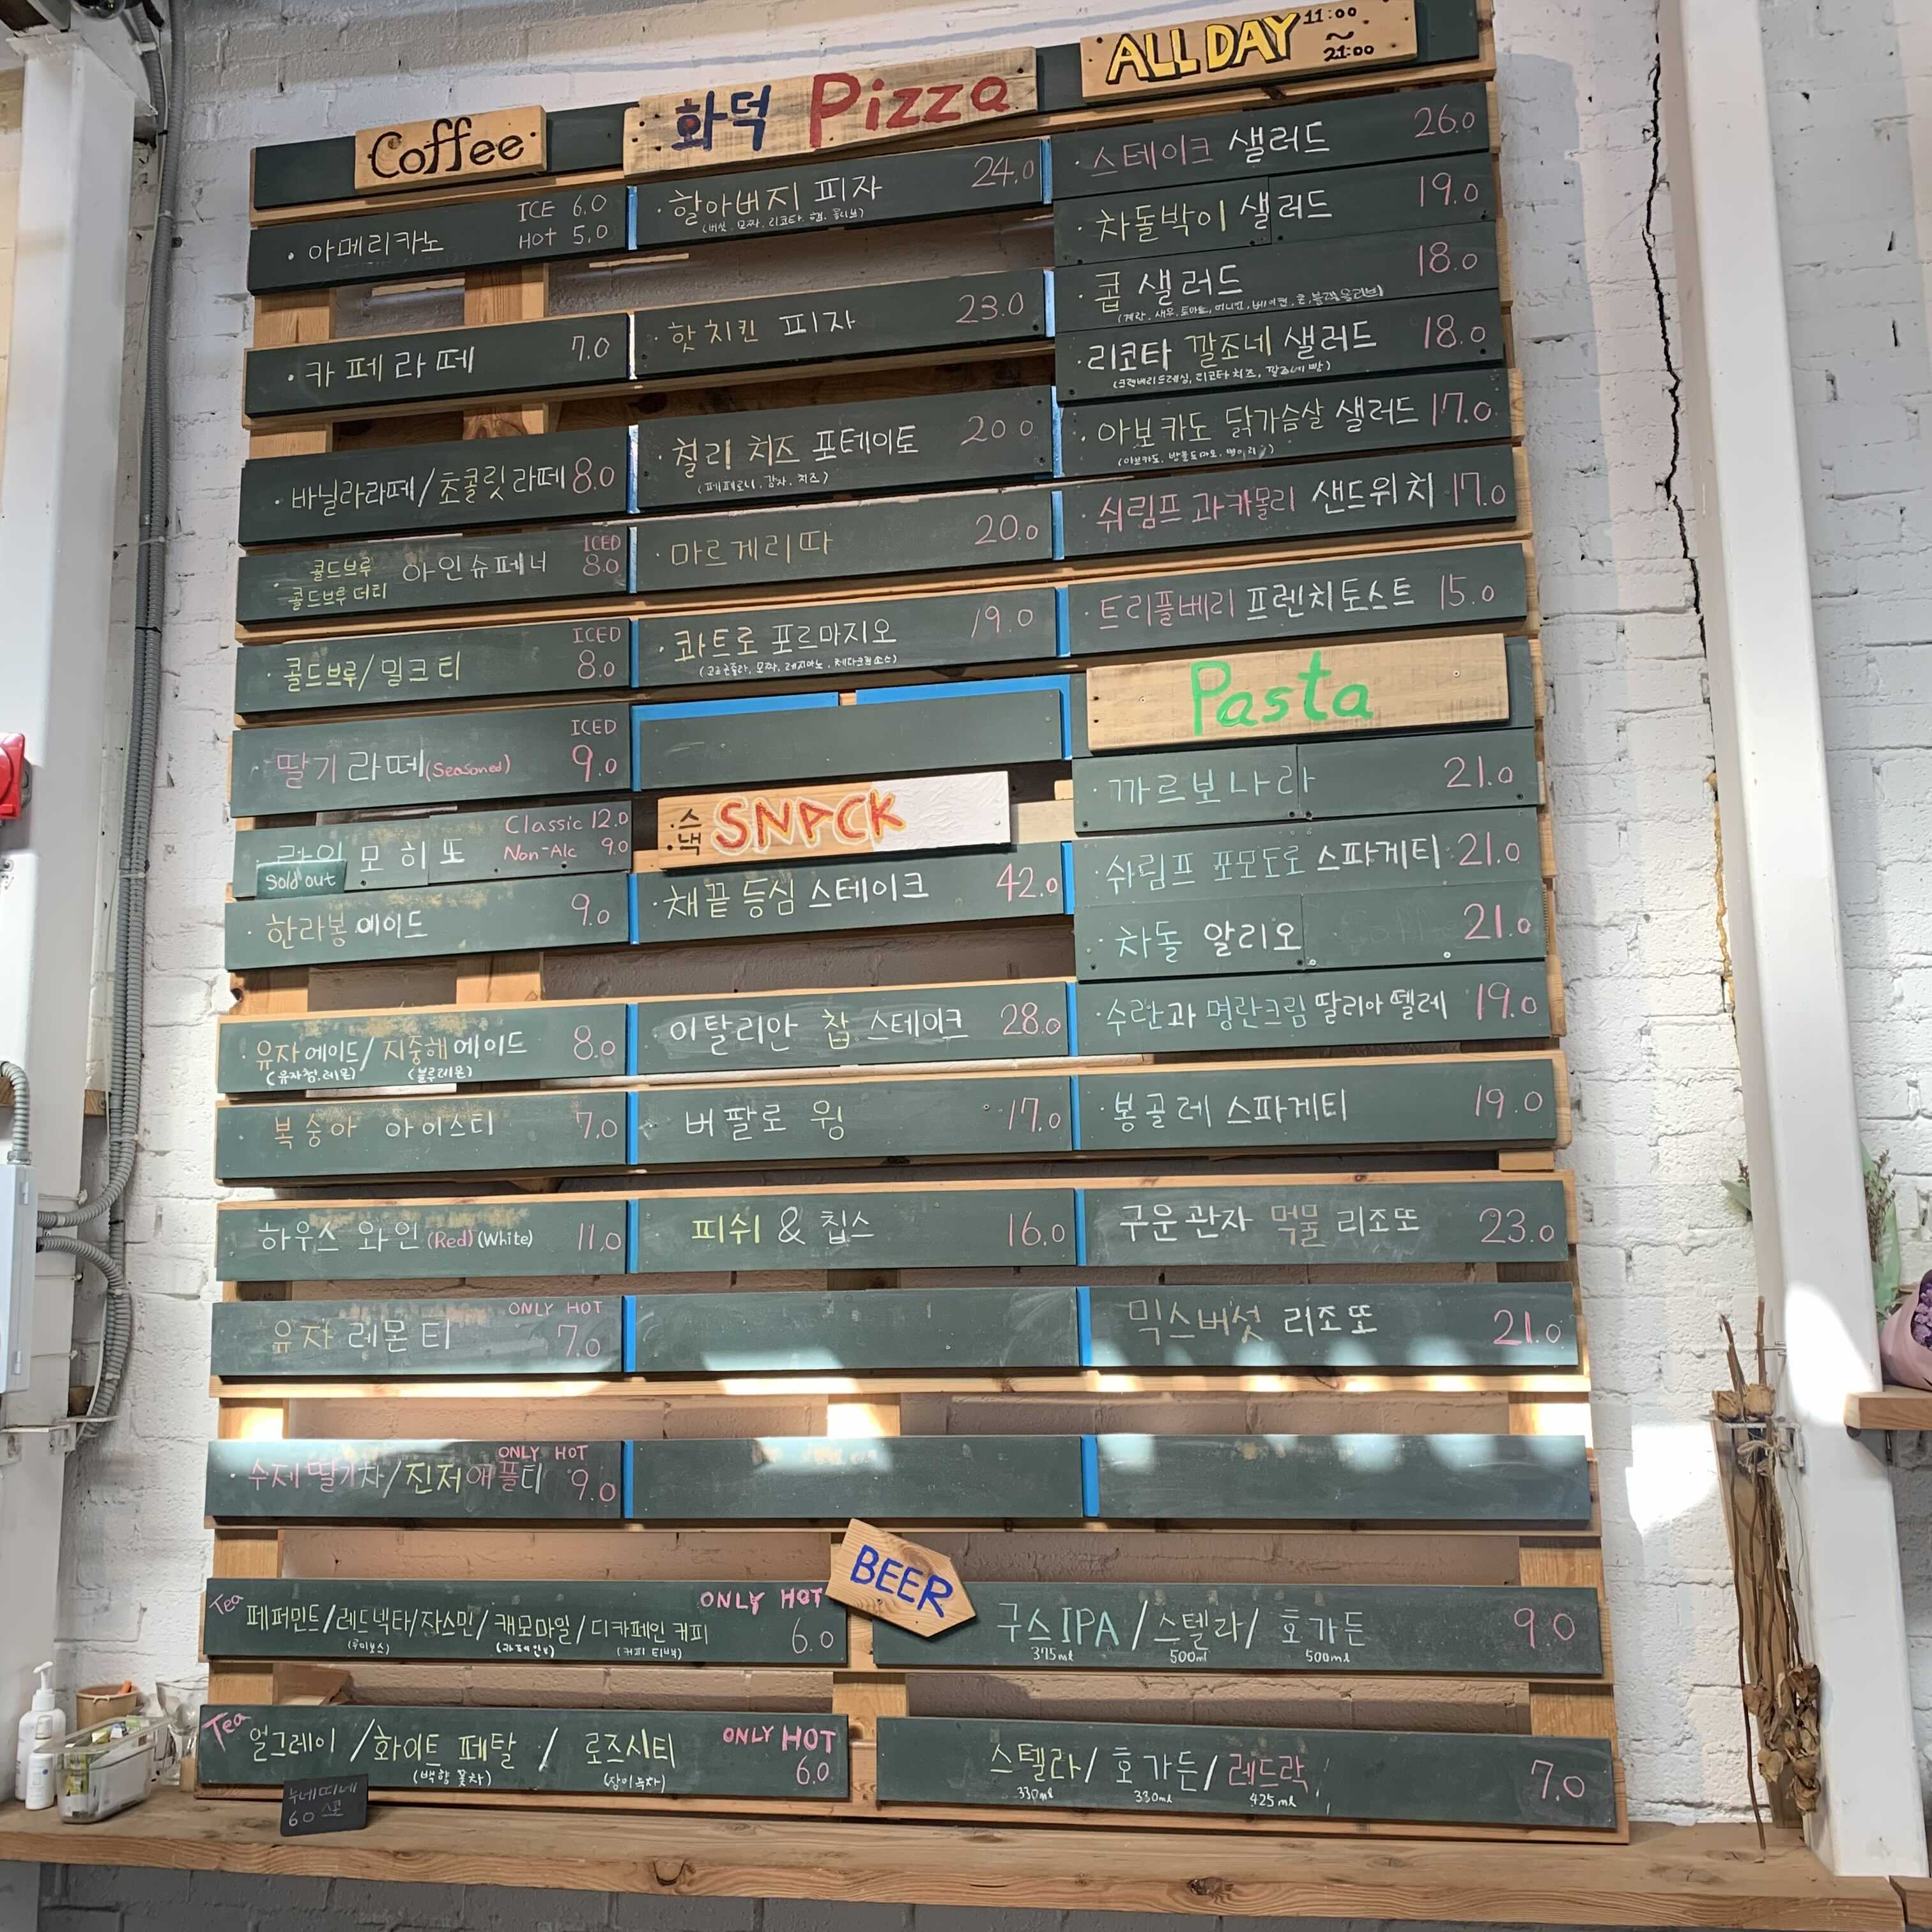 Coffee
아메리카노
ICE 6.0
HOT 5.0
카페라떼 7.0
바닐라라떼/초콜릿라떼 8.0
콜드브루
콜드브루 더티
아인슈페너
ICED
8.0
콜드브루/밀크티
ICED
8.0
딸기라떼(Seasoned)
ICED
9.0
모히또
Classic 12.0
Non-Alc 9.0
Sold out
한라봉에이드 9.0
유자에이드/지중해에이드 8.0
(유자청.레몬) (블루레몬)
복숭아 아이스티 7.0
하우스 와인(Red)(White) 11.0
유자 레몬티
ONLY HOT
7.0
수제딸기차/진저애플티
ONLY HOT
9.0
Tea
페퍼민트/레드넥타/자스민/캐모마일/디카페인 커피
(루이보스) (커피 티백)
ONLY HOT
6.0
Tea
얼그레이/화이트 페탈/로즈시티
(백향 꽃차) (장미녹차)
ONLY HOT
6.0
누네띠네
6.0
화덕 Pizza
할아버지 피자 24.0
(버섯. 모짜. 리코타. 햄. 올리브)
핫치킨 피자 23.0
칠리 치즈 포테이토 20.0
(페퍼로니. 감자. 치즈)
마르게리따 20.0
콰트로 포르마지오 19.0
스낵 SNACK
채끝 등심 스테이크 42.0
이탈리안 찹 스테이크 28.0
버팔로 윙 17.0
피쉬 & 칩스 16.0
ALL DAY
11:00
~
21:00
스테이크 샐러드 26.0
차돌박이 샐러드 19.0
콥 샐러드 18.0
리코타 깔조네 샐러드 18.0
(크랜베리드레싱, 리코타치즈, 깔조네빵)
아보카도 닭가슴살 샐러드 17.0
쉬림프 과카몰리 샌드위치 17.0
트리플베리 프렌치토스트 15.0
Pasta
까르보나라 21.0
쉬림프 포모도로 스파게티 21.0
차돌 알리오 21.0
수란과 명란크림 딸리아뗄레 19.0
봉골레 스파게티 19.0
구운관자 먹물 리조또 23.0
믹스버섯 리조또 21.0
BEER
구스IPA/스텔라/호가든 9.0
375ml 500ml 500ml
스텔라/호가든/레드락 7.0
330ml 330ml 425ml